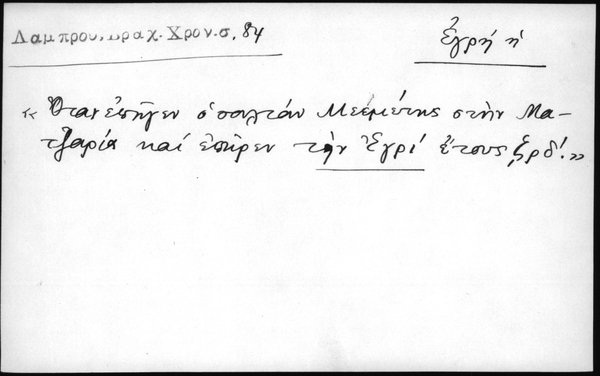 Λαμπρου, Βραχ. Χρον. σ. 84
Ἐγρή ἡ
« Ὅταν ἐπῆγεν ὁ σολτάν Μεεμέτης στὴν Μα-
τζαρία καί ἐπῆρεν τὴν Ἐγρί ἔτους ζρδ'. »